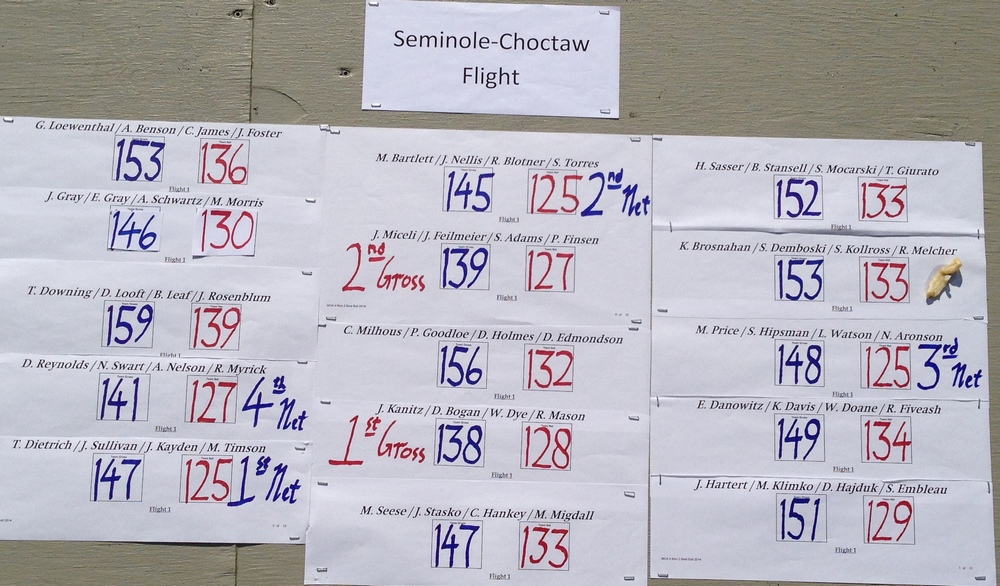 Seminole-Choctaw
Flight
G. Loewenthal / A. Benson / C. James / J. Foster
153 136
Flight 1
J. Gray / E. Gray / A. Schwartz / M. Morris
146 130
Flight 1
T. Downing / D. Looft / B. Leaf / J. Rosenblum
159 139
Flight 1
D. Reynolds / N. Swart / A. Nelson / R. Myrick
141 127 4th Net
Flight 1
T. Dietrich / J. Sullivan / J. Kayden / M. Timson
147 125 1st Net
Flight 1
M. Bartlett / J. Nellis / R. Blotner / S. Torres
145 125 2nd Net
Flight 1
J. Miceli / J. Feilmeier / S. Adams / P. Finsen
2nd Gross 139 127
Flight 1
C. Milhous / P. Goodloe / D. Holmes / D. Edmondson
156 132
Flight 1
J. Kanitz / D. Bogan / W. Dye / R. Mason
1st Gross 138 128
Flight 1
M. Seese / J. Stasko / C. Hankey / M. Migdall
147 133
Flight 1
H. Sasser / B. Stansell / S. Mocarski / T. Giurato
152 133
Flight 1
K. Brosnahan / S. Demboski / S. Kollross / R. Melcher
153 133
Flight 1
M. Price / S. Hipsman / L. Watson / N. Aronson
148 125 3rd Net
Flight 1
E. Danowitz / K. Davis / W. Doane / R. Fiveash
149 134
Flight 1
J. Hartert / M. Klimko / D. Hajduk / S. Embleau
151 129
Flight 1